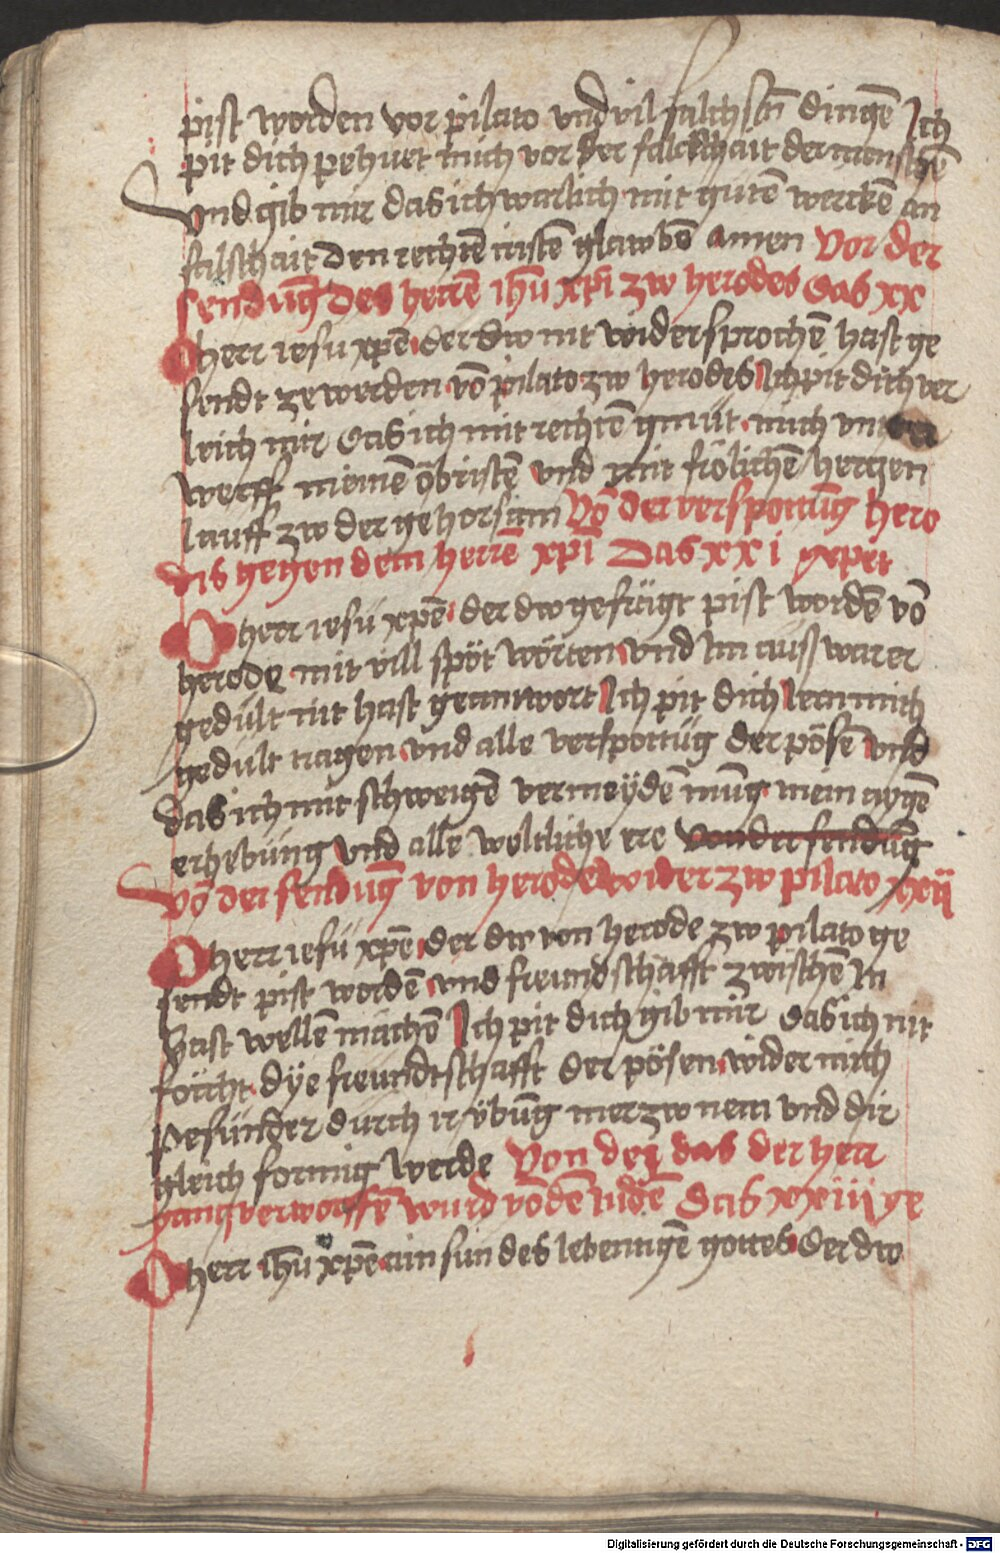 pist worden vor pilato vnd vil falchsñ dingē Ich
pit dich pehuet mich vor der falchhait der menschē
Vnd gib mir das ich warlich mit gutē werckē an
falschait den rechtē cristē glawbē amen Vor der
sendūg des herrē ihū xpi zw herodes das xx
O herr iesu xpē der dw nit widersprochē hast ge
sendt ze werden vō pilato zw herodes Ich pit dich ver
leich mir das ich mit rechtē gmüt mich vnter
werff meinē öbristē vnd mit frölichē hertzen
lauff zw der gehorsam Vō der verspottūg hero
dis gegen dem herrē xpi Das xxi gepet
O herr iesu xpē der dw gefragt pist wordē vō
herode mit vill spöt wörten vnd im auss warer
gedult nit hast geantwort Ich pit dich lern mich
gedult tragen vnd alle verspottūg der pösē vnd
das ich mit schweigē vermeydē müg mein aygē
erhebūng vnd alle weltliche ere von der sendūg
Vō der sendūg von herode wider zw pilato xxij
O herr iesu xpē der dw von herode zw pilato ge
sendt pist wordē vnd freundschafft zwischē in
hast wellē machē Ich pit dich gib mir das ich nit
fürcht dye freundtschafft der pösen wider mich
Pesunder durch ir ybūng mer zw nem vnd dir
gleich formig werde Von dem das der herr
gantz verworffē wurd vō dē iudē Das xxiii ge
O herr ihū xpē ain sun des lebentigē gottes der dw
Digitalisierung gefördert durch die Deutsche Forschungsgemeinschaft - DFG